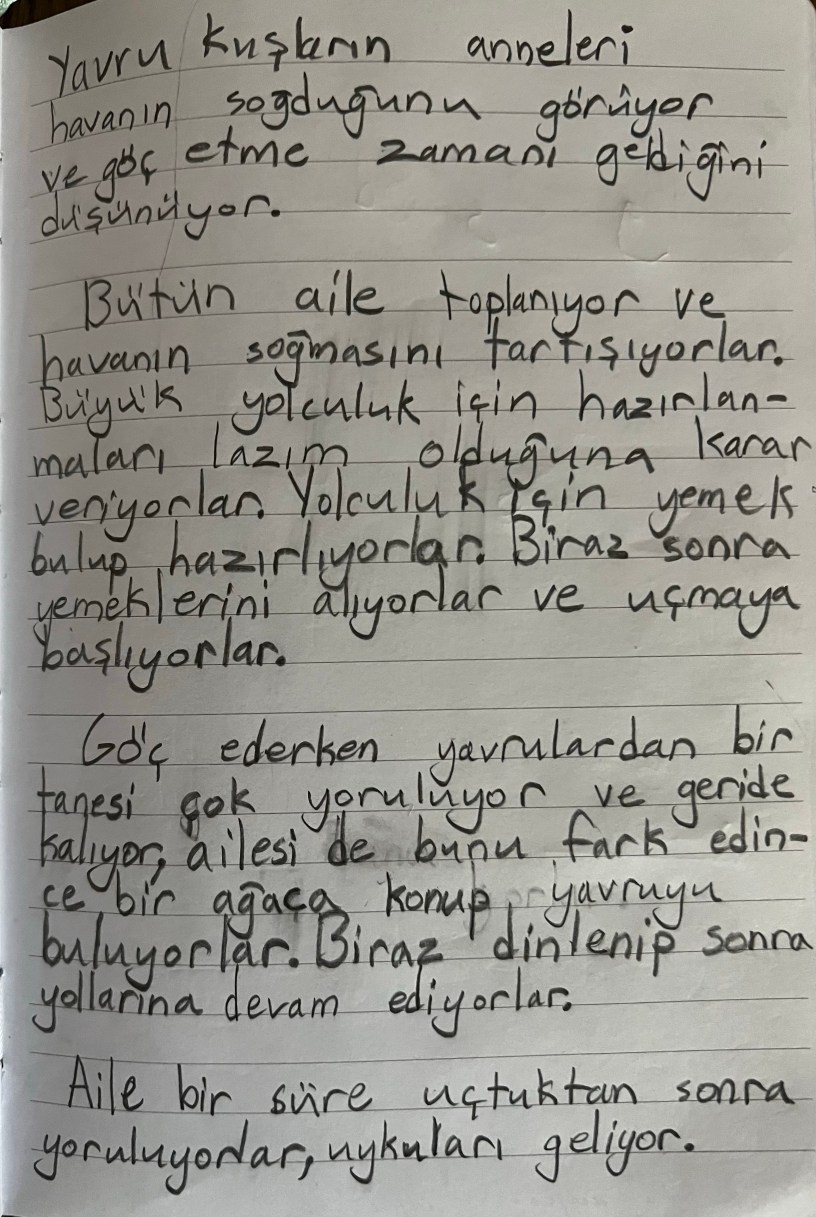 Yavru kuşların anneleri
havanın soğduğunu görüyor
ve göç etme zamanı geldiğini
düşünüyor.
Bütün aile toplanıyor ve
havanın soğmasını tartışıyorlar.
Büyük yolculuk için hazırlan-
maları lazım olduğuna karar
veriyorlar. Yolculuk için yemek
bulup hazırlıyorlar. Biraz sonra
yemeklerini alıyorlar ve uçmaya
başlıyorlar.
Göç ederken yavrulardan bir
tanesi çok yoruluyor ve geride
kalıyor, ailesi de bunu fark edin-
ce bir ağaca konup yavruyu
buluyorlar. Biraz dinlenip sonra
yollarına devam ediyorlar.
Aile bir süre uçtuktan sonra
yoruluyorlar, uykuları geliyor.